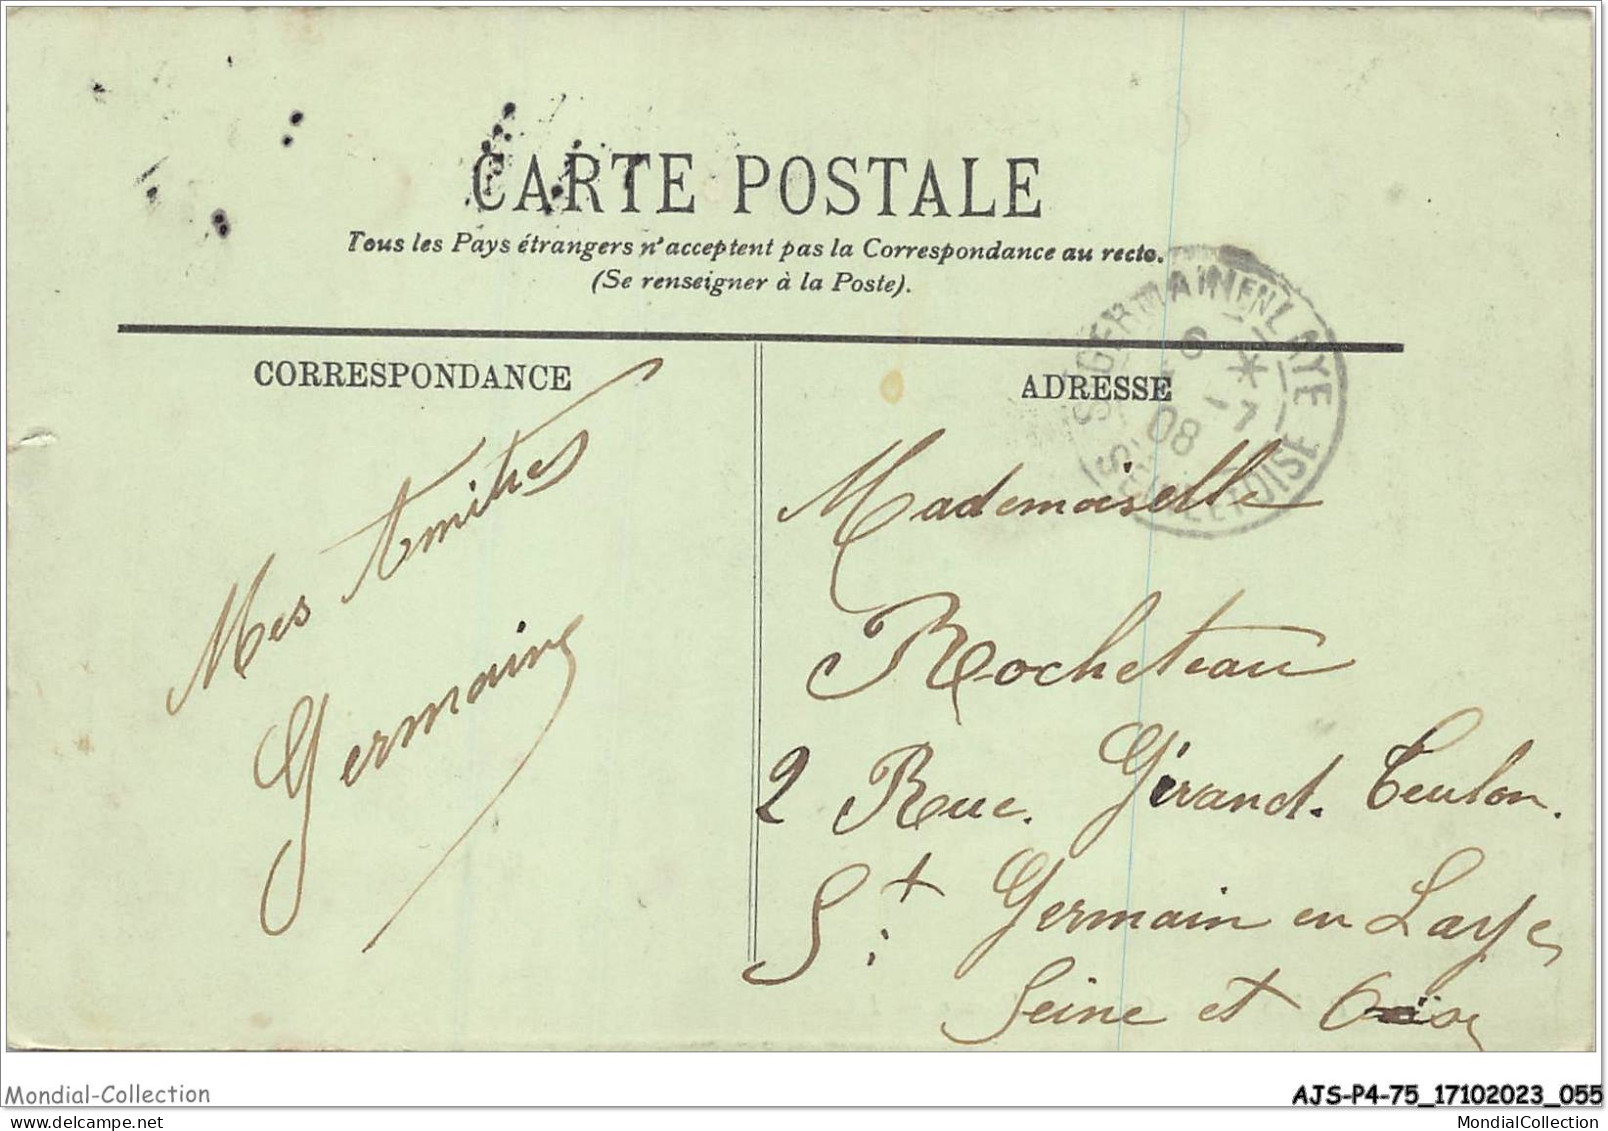 CARTE POSTALE
Tous les Pays étrangers n'acceptent pas la Correspondance au recto.
(Se renseigner à la Poste).
CORRESPONDANCE
Mes Amitiés
Germaine
ADRESSE
Sᵗ GERMAIN EN LAYE
6 * 
7 - 1
08
SEINE ET OISE
Mademoiselle
Rocheteau
2 Rue. Girand. Teulon.
Sᵗ Germain en Laye
Seine et Oise
Mondial-Collection
AJS-P4-75_17102023_055
www.delcampe.net
MondialCollection